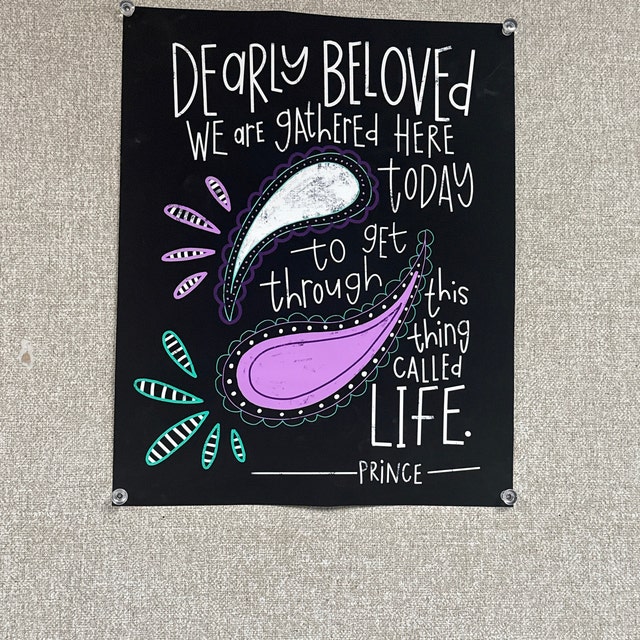 DEaRLY BELOVEd
WE are gAthEREd HERE
toDAY
to gEt
through
this
thing
CALLEd
LIFE.
PRiNCE